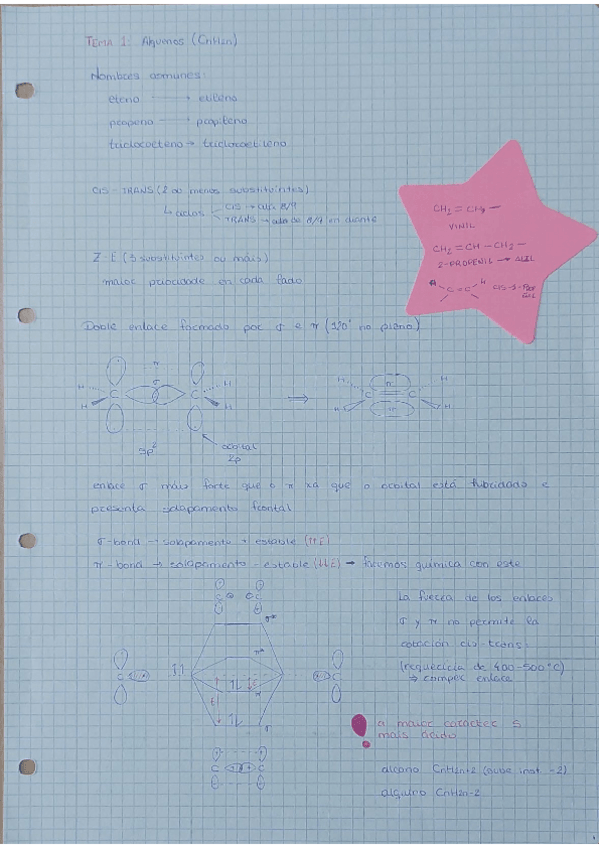 TEMA 1: Alquenos (CnH2n)
Nombres comunes:
eteno → etileno
propeno → propileno
tricloroeteno → tricloroetileno
CIS-TRANS (2 ou menos substituintes)
↳ ciclos
CIS →
TRANS → en diante
CH2 = CH2 -
VINIL
CH2 = CH - CH2 -
2-PROPENIL → ALIL
H
C = C
H
Z-E (3 substituintes ou máis)
maior prioridade en cada lado
Doble enlace formado por σ e π (120° no plano)
π
σ
H
H
C
C
H
H
⇒
H
H
π
C
C
π
H
H
sp²
orbital
2p
enlace σ máis forte que o π xa que o orbital está hibridado e
presenta solapamento frontal
σ-bond → solapamento + estable (↑↑E)
π-bond → solapamento - estable (↓↓E) → facemos química con este
C
C
σ*
π*
C
C
π
σ
C
C
La fuerza de los enlaces
σ y π no permite la
rotación cis-trans:
(requeriría de 400-500°C)
⇒ romper enlace
a maior carácter s
máis ácido
alcano CnH2n+2 (cube inst -2)
alquino CnH2n-2